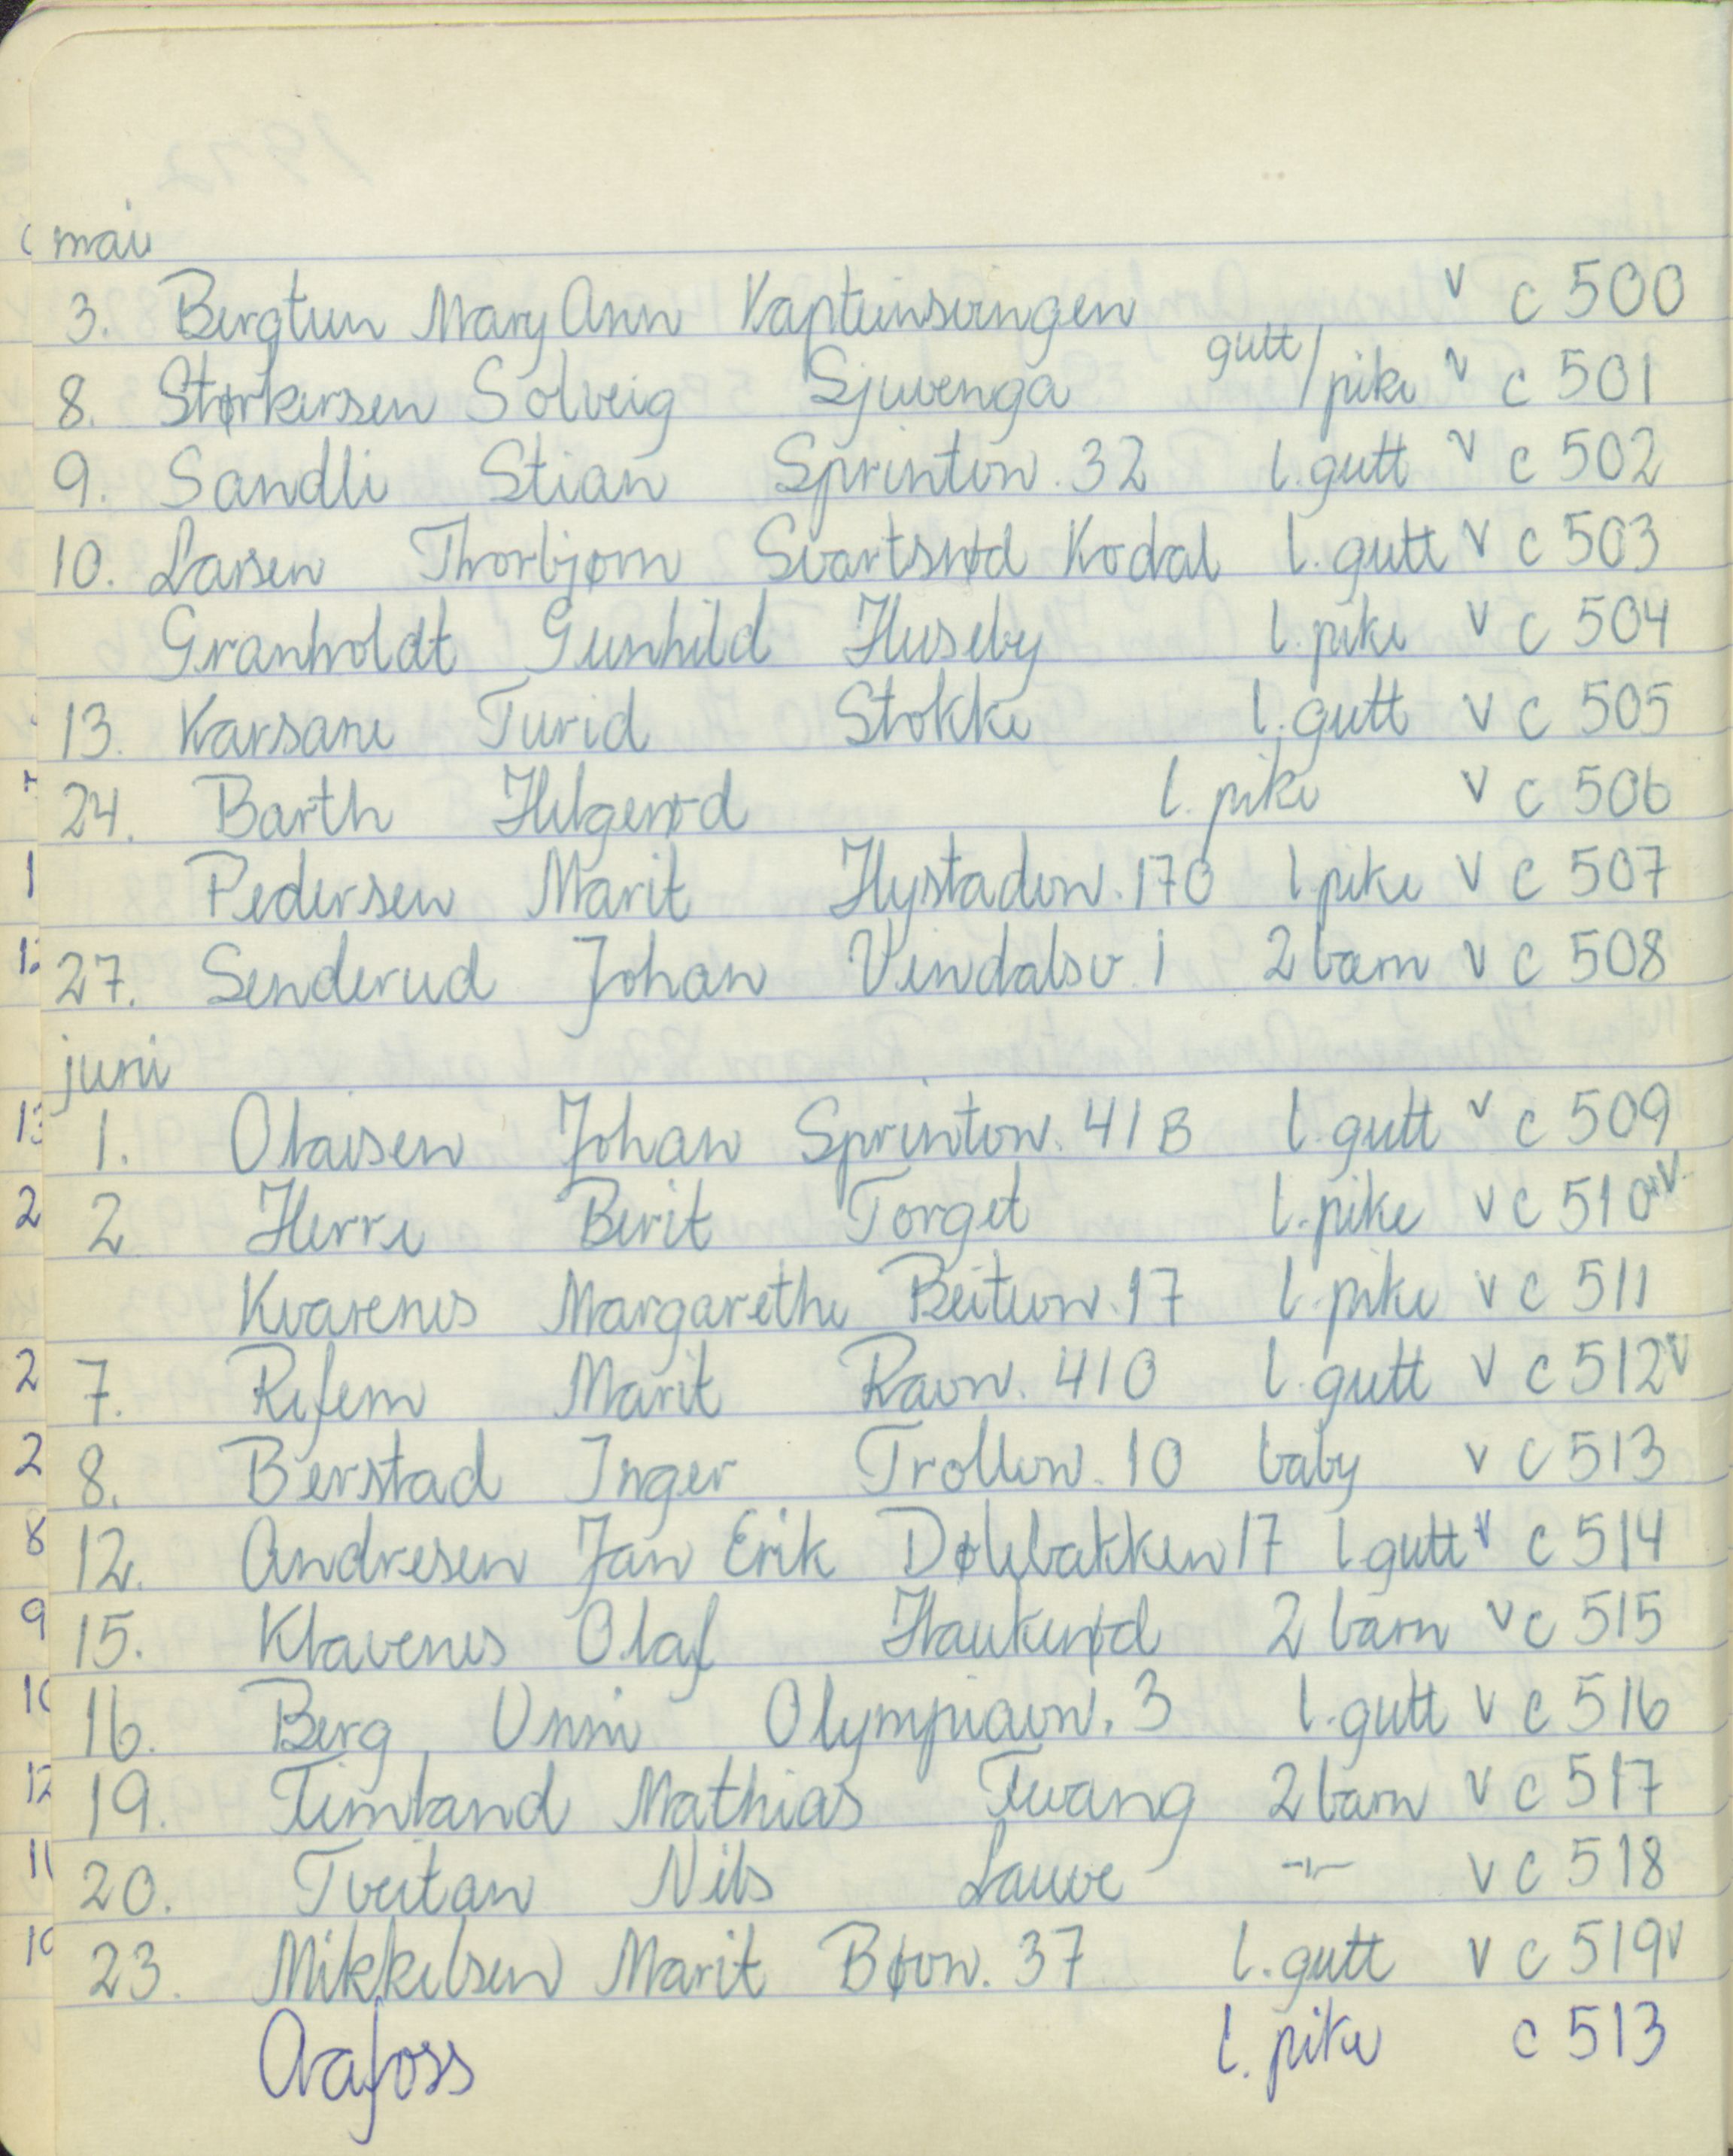 mai
3. Bergtun Mary Ann Kapteinsvingen v c 500
8. Størkersen Solveig Sjuvenga gutt/pike v c 501
9. Sandli Stian Sprintvn. 32 l. gutt v c 502
10. Larsen Thorbjørn Svartsrød Kodal l. gutt v c 503
Granholdt Gunhild Huseby l. pike v c 504
13. Karsare Turid Stokke l. gutt v c 505
24. Barth Helgerød l. pike v c 506
Pedersen Marit Hystadvn. 170 l. pike v c 507
27. Senderud Johan Vindalsv. 1 2 barn v c 508
juni
1. Olaisen Johan Sprintvn. 41 B l. gutt v c 509
2 Herre Berit Torget l. pike v c 510 v
Kvarenes Margarethe Beitevn. 17 l. pike v c 511
7. Refem Marit Ravn. 410 l. gutt v c 512 v
8. Berstad Inger Trollvn. 10 baby v c 513
12. Andresen Jan Erik Dølebakken 17 l. gutt v c 514
15. Klavenes Olaf Haukerød 2 barn v c 515
16. Berg Unni Olympiavn. 3 l. gutt v c 516
19. Timland Mathias Tvang 2 barn v c 517
20. Tveitan Nils Lauve -"- v c 518
23. Mikkelsen Marit Bøvn. 37 l. gutt v c 519 v
Arafoss l. pike c 513